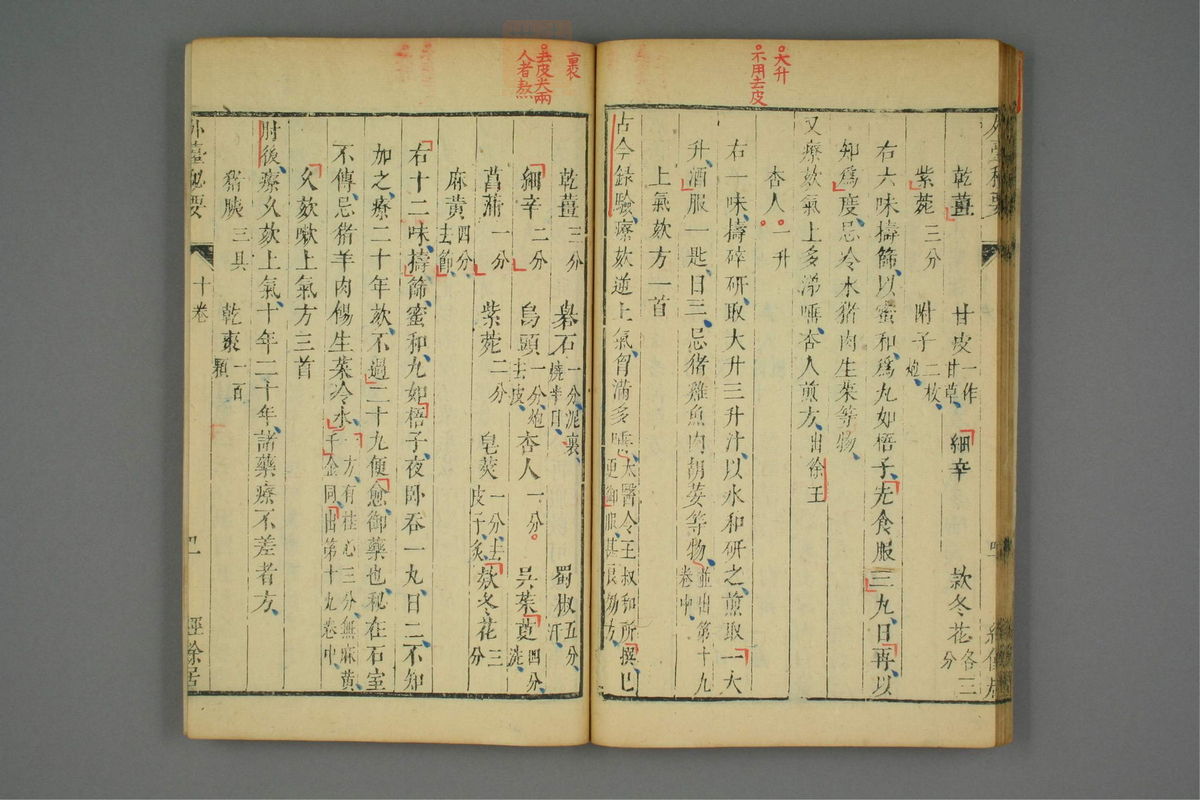 大升
不用去皮
乾薑 甘皮一作甘草 細辛 款冬花各三分
紫菀三分 附子二枚炮
右六味擣篩以蜜和為丸如梧子先食服三丸日再以
知為度忌冷水猪肉生菜等物
又療欬氣上多涕唾杏人煎方出徐王
杏人一升
右一味擣碎研取大升三升汁以水和研之煎取一大
升酒服一匙日三忌猪雞魚肉胡荽等物並出第十九卷中
上氣欬方一首
古今錄驗療欬逆上氣胷滿多唾太醫令王叔和所撰已更御服甚良効方
裹
去皮尖兩
人者熬
乾薑三分 礜石一分泥裹燒半日 蜀椒五分汗
細辛二分 烏頭一分炮去皮 杏人一分 吳茱萸四分洗
菖蒲一分 紫菀二分 皂莢一分去皮子炙 款冬花三分
麻黃四分去節
右十二味擣篩蜜和丸如梧子夜卧吞一丸日二不知
加之療二十年欬不過二十九便愈御藥也秘在石室
不傳忌猪羊肉餳生菜冷水一方有桂心三分無麻黃千金同出第十九卷中
久欬嗽上氣方三首
肘後療久欬上氣十年二十年諸藥療不差者方
猪胰三具 乾棗一百顆
外臺秘要 十卷 經餘居